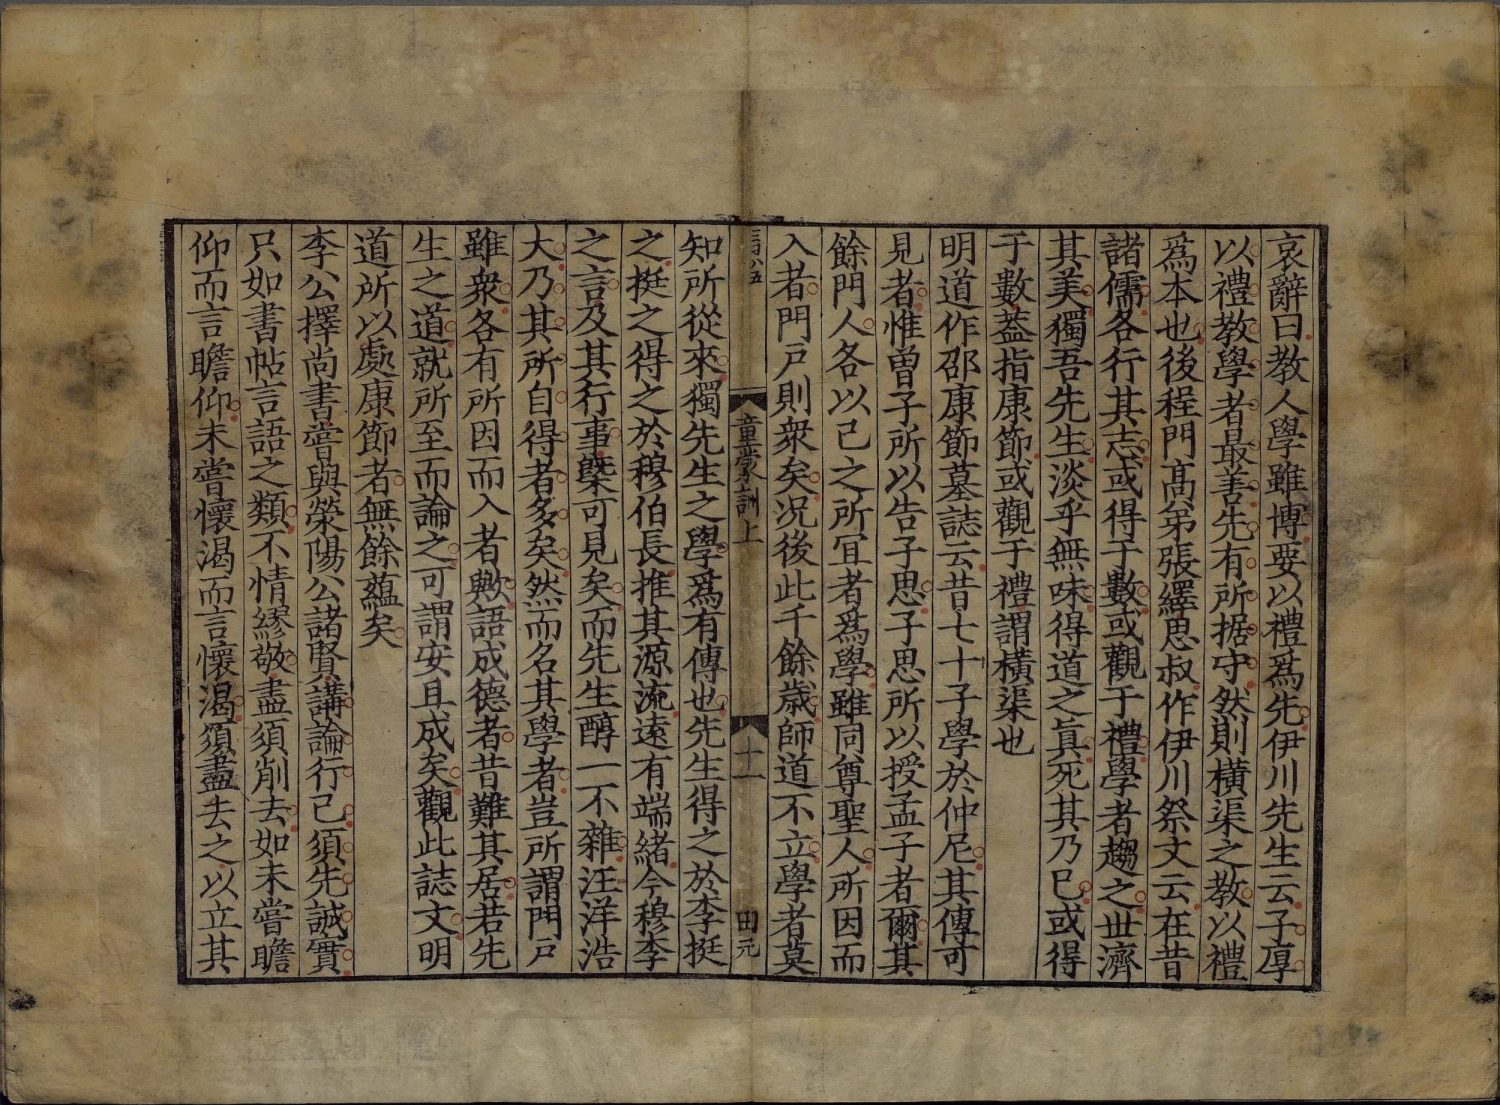 哀辭曰教人學雖博要以禮爲先伊川先生云子厚
以禮教學者最善先有所据守然則橫渠之教以禮
爲本也後程門髙弟張繹思叔作伊川祭文云在昔
諸儒各行其志或得于數或觀于禮學者趨之世濟
其美獨吾先生淡乎無味得道之眞死其乃已或得
于數葢指康節或觀于禮謂橫渠也
明道作邵康節墓誌云昔七十子學於仲尼其傳可
見者惟曽子所以告子思子思所以授孟子者爾其
餘門人各以己之所冝者爲學雖同尊聖人所因而
入者門戸則衆矣况後此千餘歳師道不立學者莫
童蒙訓上
十一
田元
知所從來獨先生之學爲有傳也先生得之於李挺
之挺之得之於穆伯長推其源流遠有端緒今穆李
之言及其行事槩可見矣而先生醇一不雜汪洋浩
大乃其所自得者多矣然而名其學者豈所謂門戸
雖衆各有所因而入者歟語成德者昔難其居若先
生之道就所至而論之可謂安且成矣觀此誌文明
道所以處康節者無餘蘊矣
李公擇尚書嘗與滎陽公諸賢講論行己須先誠實
只如書帖言語之類不情繆敬盡須削去如未嘗瞻
仰而言瞻仰未嘗懷渴而言懷渴須盡去之以立其